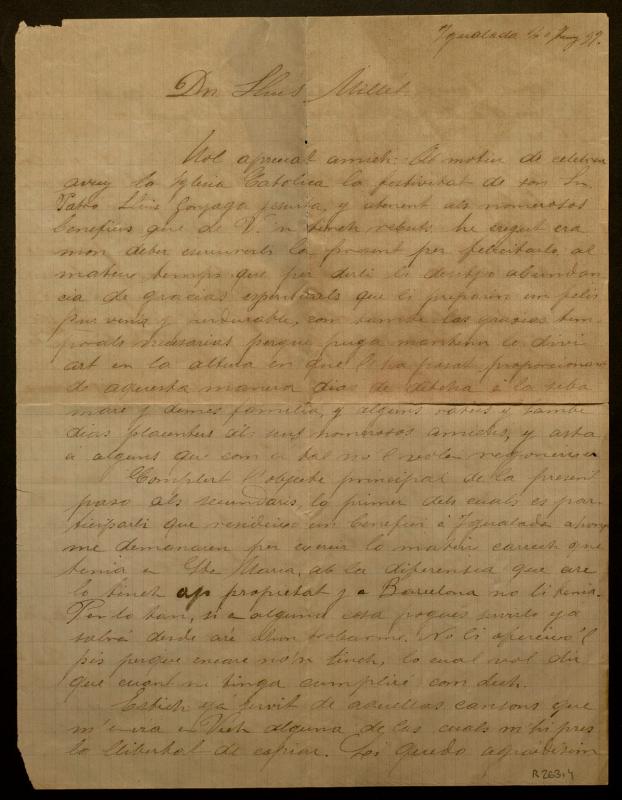 Igualada 20 Juny 97.
Dn. Lluis Millet
Mol apreciat amich: Ab motiu de celebrar
avuy la Iglesia Catolica la festivitat de son Sn.
Patró Lluis Gonzaga jesuita, y atenent als numerosos
beneficis que de V. n tinch rebuts, he cregut era
mon deber escriurerli la present per felicitarlo al
mateix temps que per dirli li desitjo abundan
cia de gracias espirituals que li preparin un felis
pervenir y perdurable, com tambe las gracias tem
porals necesarias perque puga mantenir lo diví
art en la altura en que l'ha posat proporcionant
de aquesta manera dias de ditxa á la seba
mare y demes familia, y alguns ratets y tambe
dias placenters als seus numerosos amichs, y asta
á alguns que com a tal no l volen regoneixer
Complert l'objecte principal de la present
paso als secundaris, lo primer dels cuals es par
ticiparli que resideixo un benefici á Igualada ahont
me demanaren per exercir lo mateix carrech que
tenia en Sta Maria, ab la diferensia que are
lo tinch ap propietat y a Barcelona no li tenia.
Per lo tan, si en alguna cosa pogués servirlo ya
sabrá desde are ahon trobarme. No li ofereixo 'l
pis perque encare no'n tinch, lo cual vol dir
que cuant ne tinga cumpliré com dech.
Estich ya servit de aquellas cansons que
m'envia en Vich alguna de las cuals m'hi pres
la llibertat de copiar. Li quedo agraidisim
R 263,4